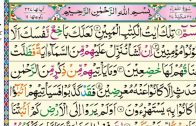 بِسْمِ اللهِ الرَّحْمٰنِ الرَّحِيْمِ
طٰسٓمّٓ تِلْكَ اٰيٰتُ الْكِتٰبِ الْمُبِيْنِ لَعَلَّكَ بَاخِعٌ نَّفْسَكَ اَلَّا
يَكُوْنُوْا مُؤْمِنِيْنَ اِنْ نَّشَاْ نُنَزِّلْ عَلَيْهِمْ مِّنَ السَّمَآءِ اٰيَةً فَظَلَّتْ
اَعْنَاقُهُمْ لَهَا خٰضِعِيْنَ وَمَا يَاْتِيْهِمْ مِّنْ ذِكْرٍ مِّنَ الرَّحْمٰنِ
مُحْدَثٍ اِلَّا كَانُوْا عَنْهُ مُعْرِضِيْنَ فَقَدْ كَذَّبُوْا فَسَيَاْتِيْهِمْ اَنْۢبٰٓؤُا
مَا كَانُوْا بِهٖ يَسْتَهْزِءُوْنَ اَوَلَمْ يَرَوْا اِلَى الْاَرْضِ كَمْ اَنْۢبَتْنَا